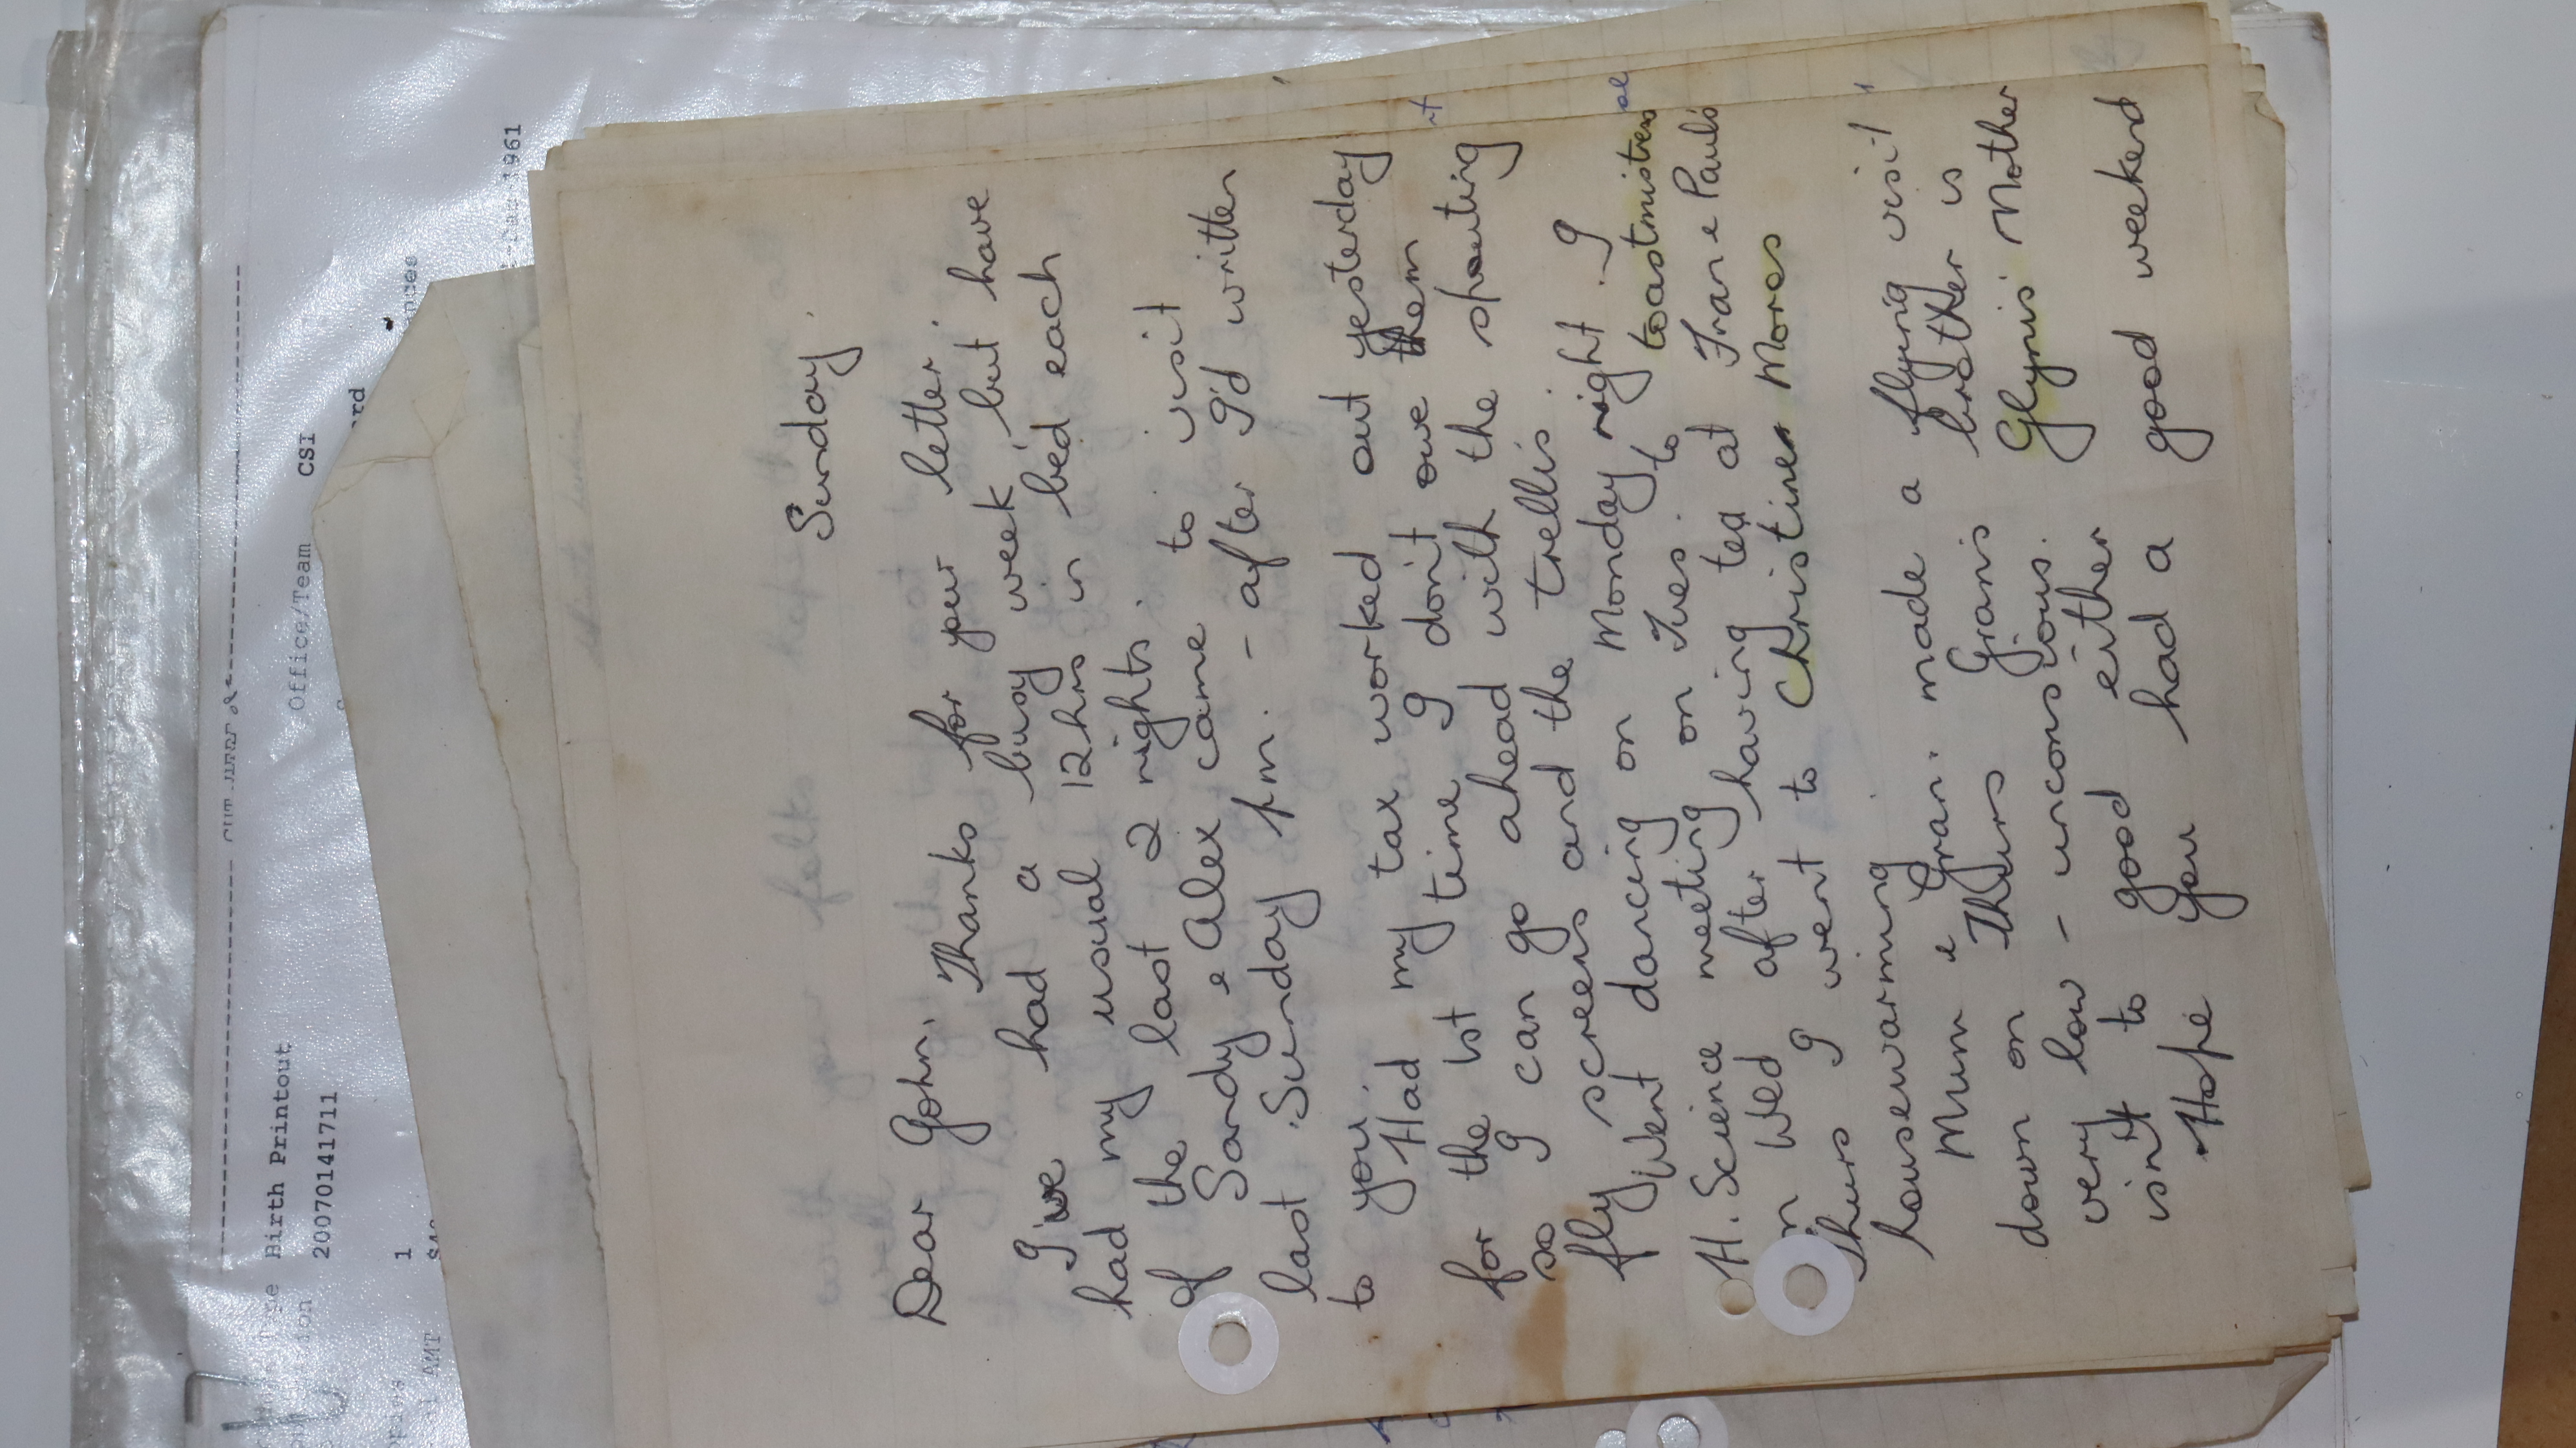 Birth Printout
20070141711
1
Office/Team CSI
1961
Sunday.
Dear John,
Thanks for your letter.
I've had a busy week, but have
had my usual 12hrs in bed each
of the last 2 nights.
Sandy & Alex came to visit
last Sunday pm. - after I'd written
to you.
Had my tax worked out yesterday
for the 1st time I don't owe them
so I can go ahead with the spouting
fly screens and the trellis. I
Went dancing on Monday night
H. Science meeting on Tues. to toastmistress
on Wed after having tea at Fran & Paul's
Thurs I went to Christine Mores
housewarming
Mum & Gran. made a flying visit
down on Thurs Gran's brother is
very low - unconscious. Glynis' Mother
isn't to good either
Hope you had a good weekend